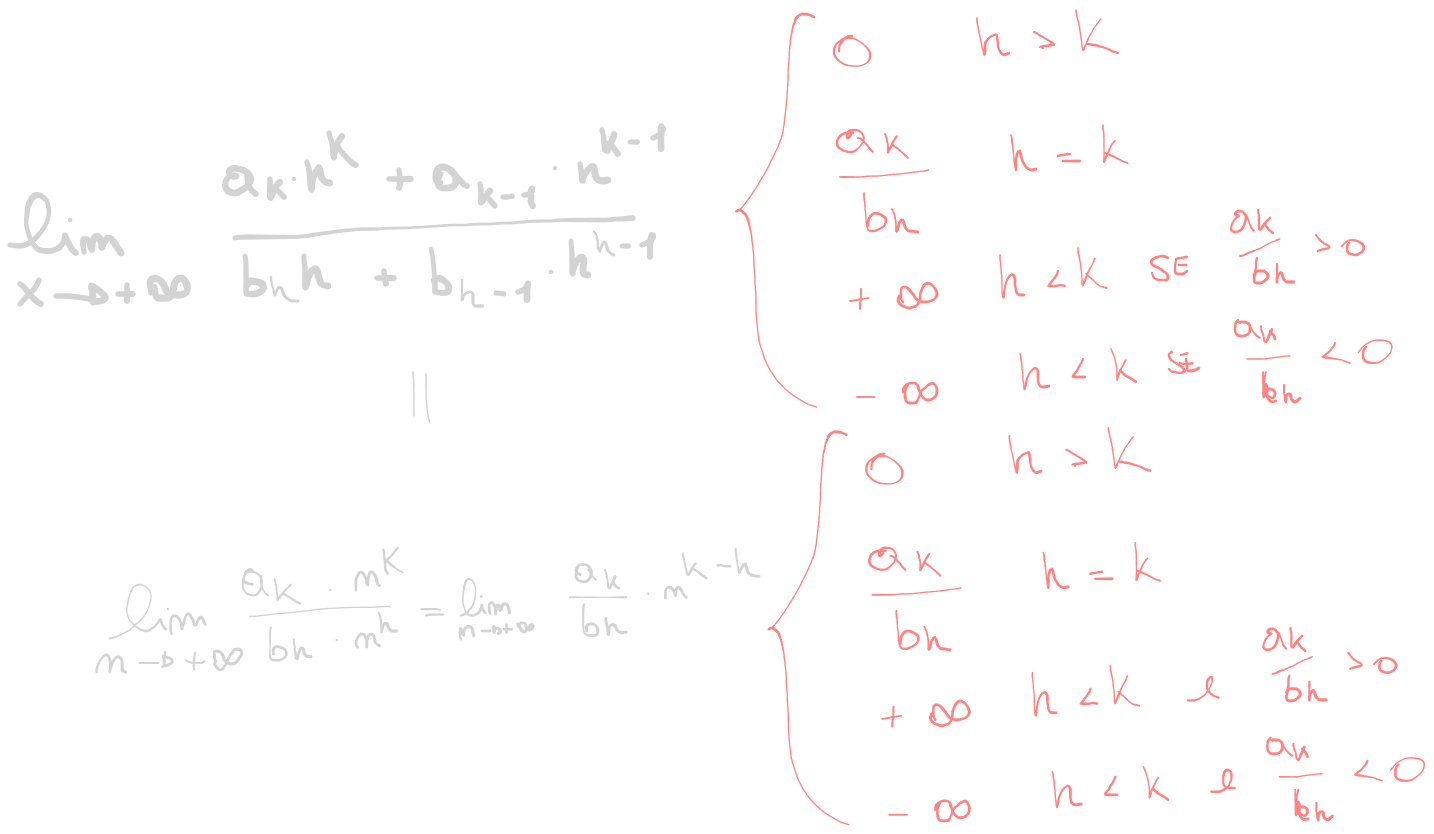 lim x→+∞ (a_k · n^k + a_{k-1} · n^{k-1}) / (b_h h + b_{h-1} · h^{h-1})
0 h > k
a_k / b_h h = k
+ ∞ h < k SE a_k / b_h > 0
- ∞ h < k SE a_k / b_h < 0
||
lim n→+∞ (a_k · n^k) / (b_h · n^h) = lim n→+∞ a_k / b_h · n^{k-h}
0 h > k
a_k / b_h h = k
+ ∞ h < k e a_k / b_h > 0
- ∞ h < k e a_k / b_h < 0